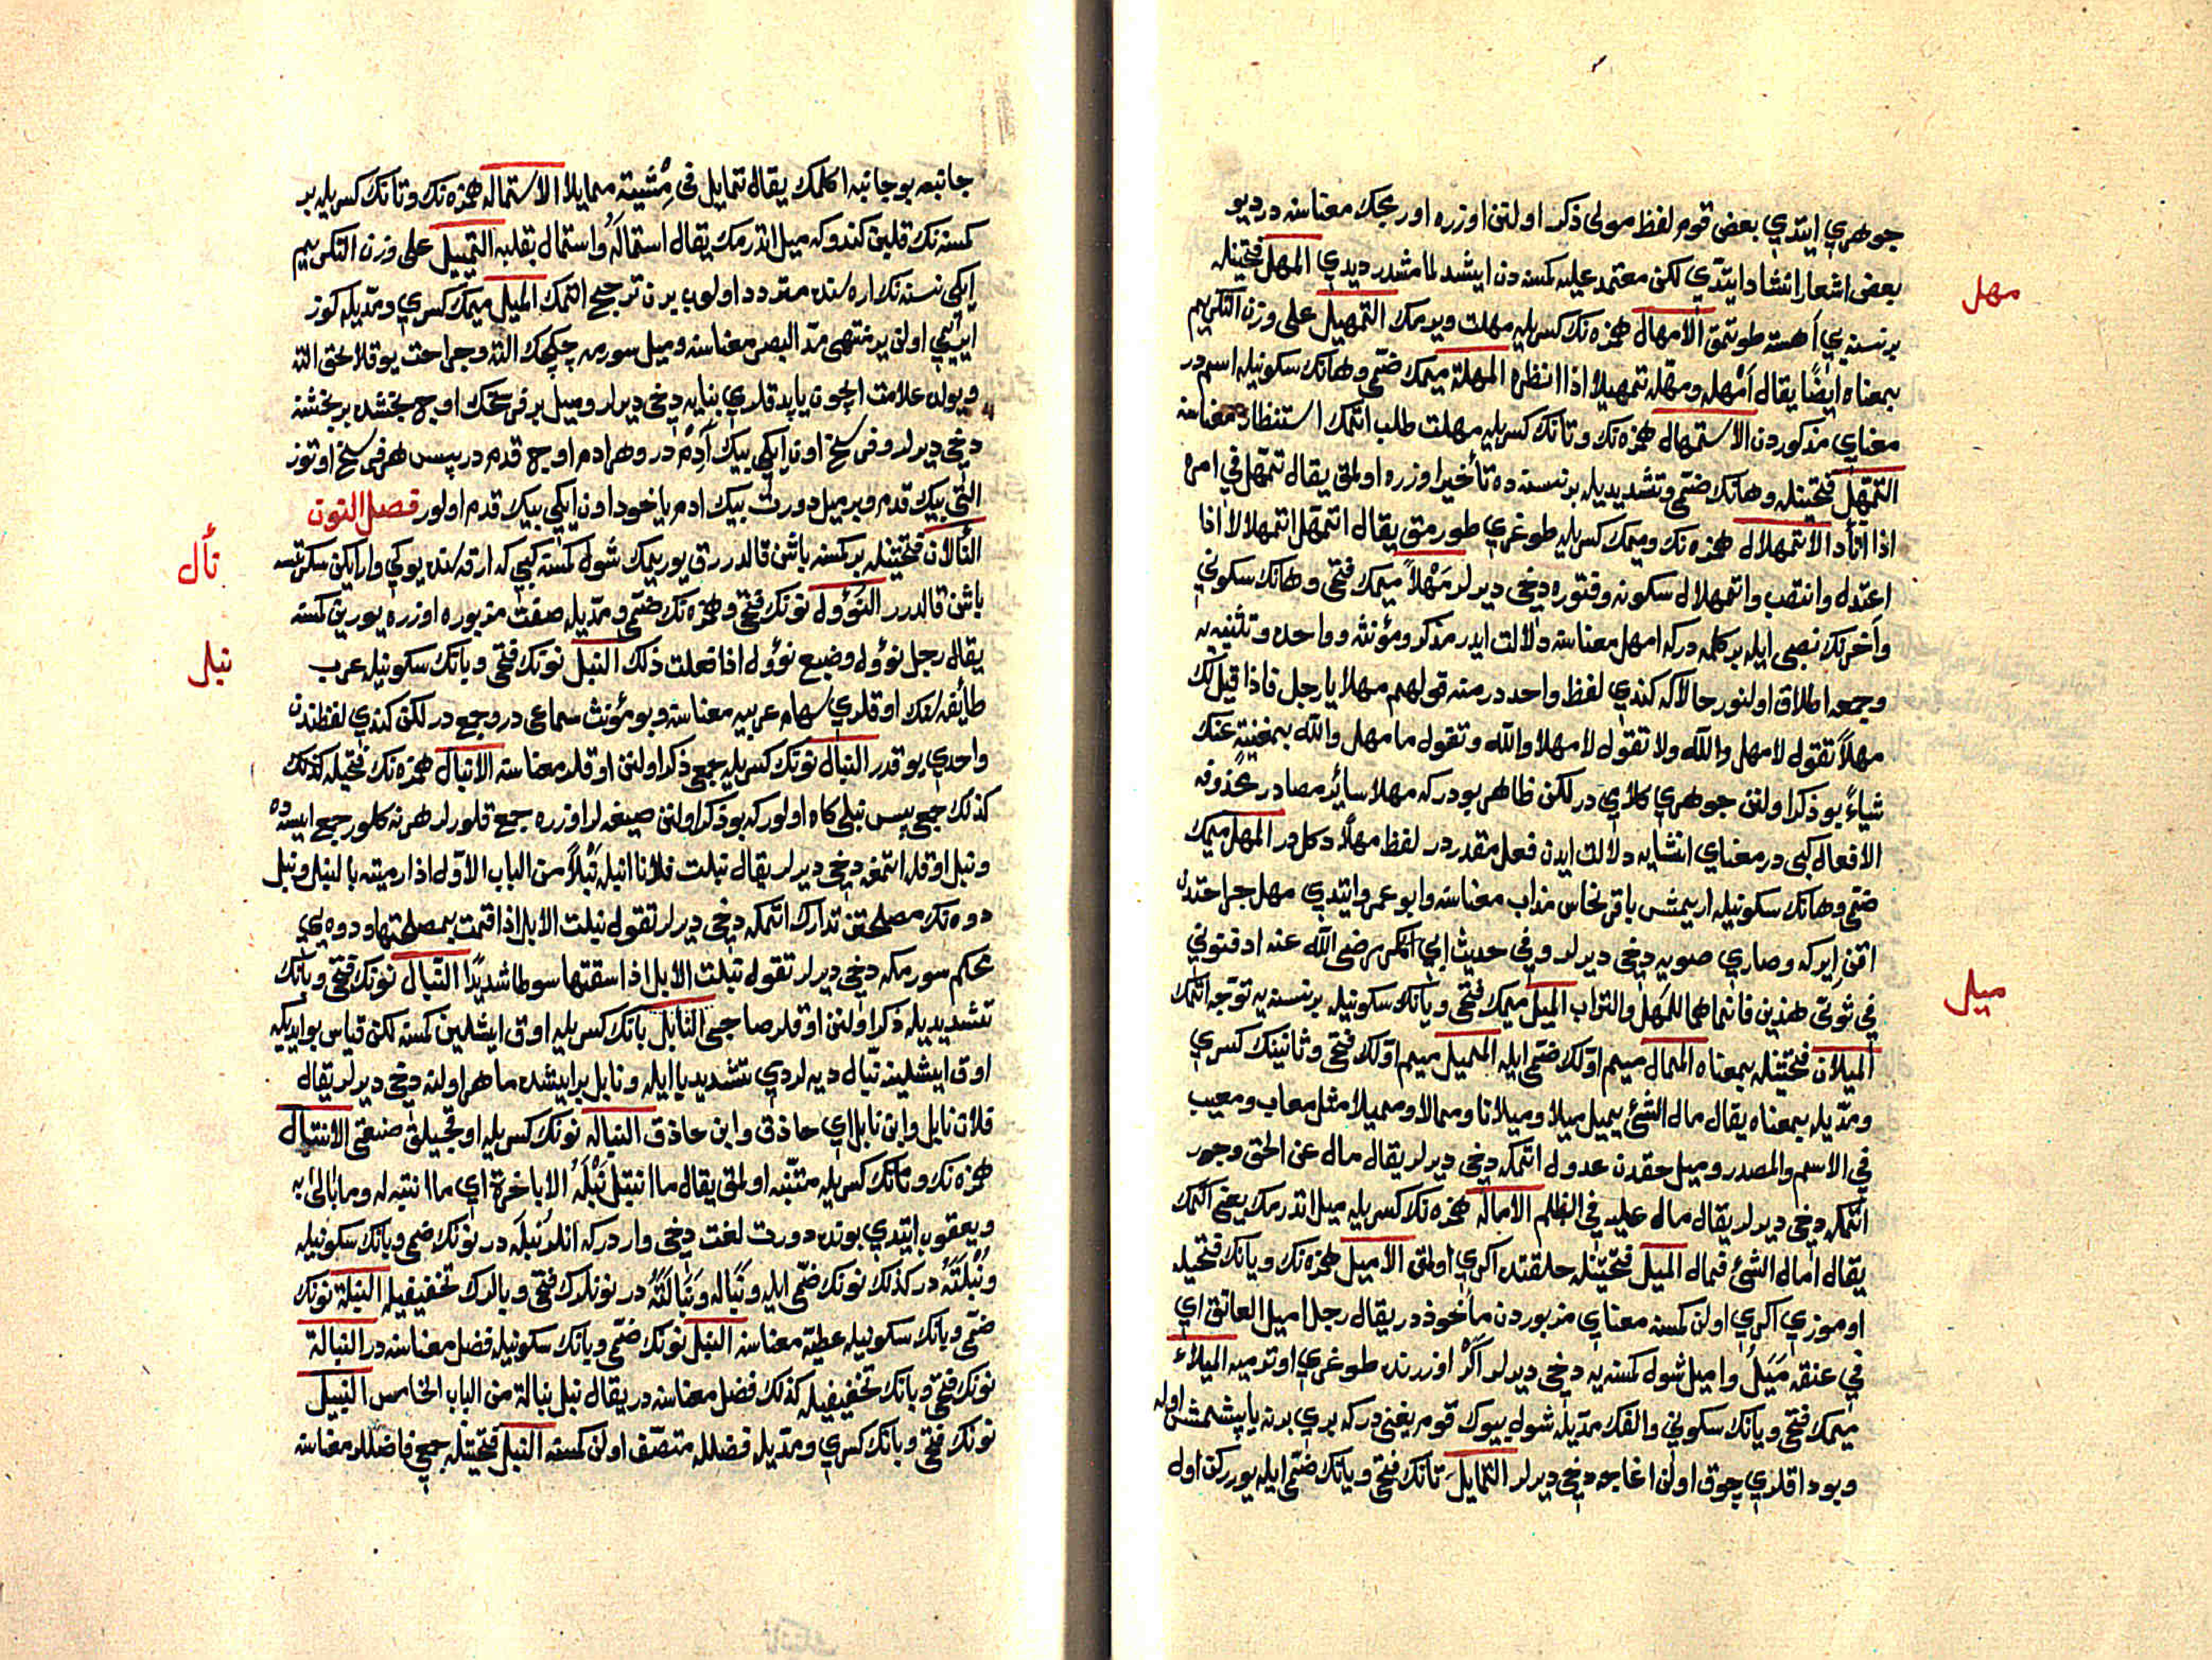 جوهري ايتدي بعض قوم لفظ مولى ذكر اولنن اوزره اورمجك معناسنه در ديو
بعض اشعار انشاد ايتدي لكن معتمد عليه كمسنه دن ايشدلمامشدر ديدي المهل فتحتينله
مهل
برنسنه يي آهسته طوتمق الامهال همزه نك كسريله مهلت ويرمك التمهيل على وزن التكريم
بمعناه ايضًا يقال أمهله ومهّله تمهيلا اذا انظره المهلة ميمك ضمّى وهانك سكونيله اسمدر
معناي مذكوردن الاستمهال همزه نك وتانك كسريله مهلت طلب اتمك استنظار معناسنه
التمهّل فتحتينله وهانك ضمّى وتشديديله برنسنه ده تأخير اوزره اولمق يقال تمهّل في امره
اذا اتأد الاتمهلال همزه نك وميمك كسريله طوغري طورمق يقال اتمهلّ اتمهلالا اذا
اعتدل وانتصب واتمهلال سكونه وفتوره دخى ديرلر مَهْلاً ميمك فتحى وهانك سكوني
وآخرنك نصبى ايله بر كلمه دركه امهل معناسنه دلالت ايدر مذكر ومؤنثه وواحده وتثنيه يه
وجمعه اطلاق اولنور حالاكه كندي لفظ واحددر منه قولهم مهلا يا رجل فاذا قيل لك
مهلاً تقول لا مهل والله ولا تقول لا مهلا والله وتقول ما مهل والله بمغنية عنك
شياءً بو ذكر اولنن جوهري كلامي در لكن ظاهر بودركه مهلا سائر مصادر محذوفه
الافعال كبى در معناي انشايه دلالت ايدن فعل مقدردر لفظ مهلاً دكلدر المهل ميمك
ضمّى وهانك سكونيله اريمش باقر نحاس مذاب معناسنه وابو عمرو ايتدي مهل جراحتدن
اقن ايركه وصاري صويه دخى ديرلر وفي حديث ابي بكر رضى الله عنه ادفنوني
في ثوبىّ هذين فانما هما للمهل والتراب الميل ميمك فتحى ويانك سكونيله برنسنه يه توجه اتمك
ميل
الميلان فتحتينله بمعناه الممال ميم اوّلك ضمّى ايله المميل ميم اوّلك فتحى وثانينك كسري
ومدّيله بمعناه يقال مال الشئ يميل ميلا وميلانا وممالا ومميلا مثل معاب ومعيب
في الاسم والمصدر وميل حقدن عدول اتمكه دخى ديرلر يقال مال عن الحق وجور
اتمكه دخى ديرلر يقال مال عليه في الظلم الاماله همزه نك كسريله ميل اتدرمك يعنى اكمك
يقال امال الشئ فمال الميل فتحتينله خلقتده اكري اولمق الاميل همزه نك ويانك فتحيله
اوموزي اكري اولن كمسنه معناي مزبوردن مأخوذدر يقال رجل اميل العاتق اي
في عنقه مَيَلٌ واميل شول كمسنه يه دخى ديرلر اكر اوزرنده طوغري اوترميه الميلاء
ميمك فتحى ويانك سكوني والفك مدّيله شول بيوك قوم يغنى دركه بري برنه ياپشمش اوله
وبوداقلري چوق اولن اغاجه دخى ديرلر التمايل تانك فتحى ويانك ضمّى ايله يوررکن اول
جانبه بو جانبه اكلمك يقال تمايل في مِشْيته تمايلا الاستماله همزه نك وتانك كسريله بر
كمسنه نك قلبن كندوكه ميل اتدرمك يقال استماله واستمال بقلبه التمييل على وزن التكريم
ايكي نسنه نك اره سنده متردد اولوب برن ترجيح اتمك الميل ميمك كسري ومدّيله كوز
ايتي اولن ير منتهى مدّ البصر معناسنه وميل سورمه چكجك الته وجراحت يوقلايجق الته
ويولده علامت ايچون ياپدقلري بنايه دخى ديرلر وميل بر فرسخك اوچ بخشدن بر بخشنه
دخى ديرلر وفرسخ اون ايكي بيك آدم در وهر ادم اوچ قدم در پس هر فرسخ اوتوز
التى بيك قدم وبر ميل دورت بيك ادم ياخود اون ايكي بيك قدم اولور فصل النون
النألان فتحتينله بر كمسنه باشن قالدررق يوريمك شول كمسنه كبي كه ارقه سنده يوكي وار ايكن سكرتسه
نأل
باشن قالدرر النؤول نونك فتحى وهمزه نك ضمّى ومدّيله صفت مزبوره اوزره يورين كمسنه
يقال رجل نؤول وضبع نؤول اذا فعلت ذلك النبل نونك فتحى وبانك سكونيله عرب
نبل
طائفه سنك اوقلري سهام عربيه معناسنه وبو مؤنث سماعى در وجمع در لكن كندي لفظندن
واحدي يوقدر النبال نونك كسريله جمعى ذكر اولنن اوقلر معناسنه الانبال همزه نك فتحيله كذلك
كذلك جمعى پس نبلى كاه اولوركه بو ذكر اولنن صيغه لر اوزره جمع قلورلر هر نه كلور جمع ايسه ده
ونبل اوقله اتمغه دخى ديرلر يقال نبلت فلانا انبله نَبْلاً من الباب الاوّل اذا رميته بالنبل ونبل
دوه نك مصلحتن تدارك اتمكه دخى ديرلر تقول نبلت الابل اذا قمت بمصلحتها ودوه يي
محكم سورمكه دخى ديرلر تقول نبلت الابل اذا سقتها سوطا شديدًا النبّال نونك فتحى وبانك
تشديديله ذكر اولنن اوقلر صاحبى النابل بانك كسريله اوق ايشلين كمسنه لكن قياس بو ايديكه
اوق ايشلينه نبّال ديه لردي تشديد با ايله ونابل بر ايشده ماهر اولنه دخى ديرلر يقال
فلان نابل وابن نابل اي حاذق وابن حاذق النباله نونك كسريله اوقجيلق صنعتى الانتبال
همزه نك وتانك كسريله متنبّه اولمق يقال ما انتبل نَبْلَهُ الا باخرة اي ما انتبه له وما بالى به
ويعقوب ايتدي بونده دورت لغت دخى وار دركه انلر نُبلَه در نونك ضمى وبانك سكونيله
ونُبلَتَهُ در كذلك نونك ضمّى ايله ونَبَاله ونَبَالَتَهُ در نونلرك فتحى وبالرك تخفيفيله النبلة نونك
ضمّى وبانك سكونيله عطيّه معناسنه النبل نونك ضمّى وبانك سكونيله فضل معناسنه در النبالة
نونك فتحى وبانك تخفيفيله كذلك فضل معناسنه در يقال نبل نبالة من الباب الخامس النبيل
نونك فتحى وبانك كسري ومدّيله فضلله متصّف اولن كمسنه النبل فتحتينله جمعى فاضللر معناسنه